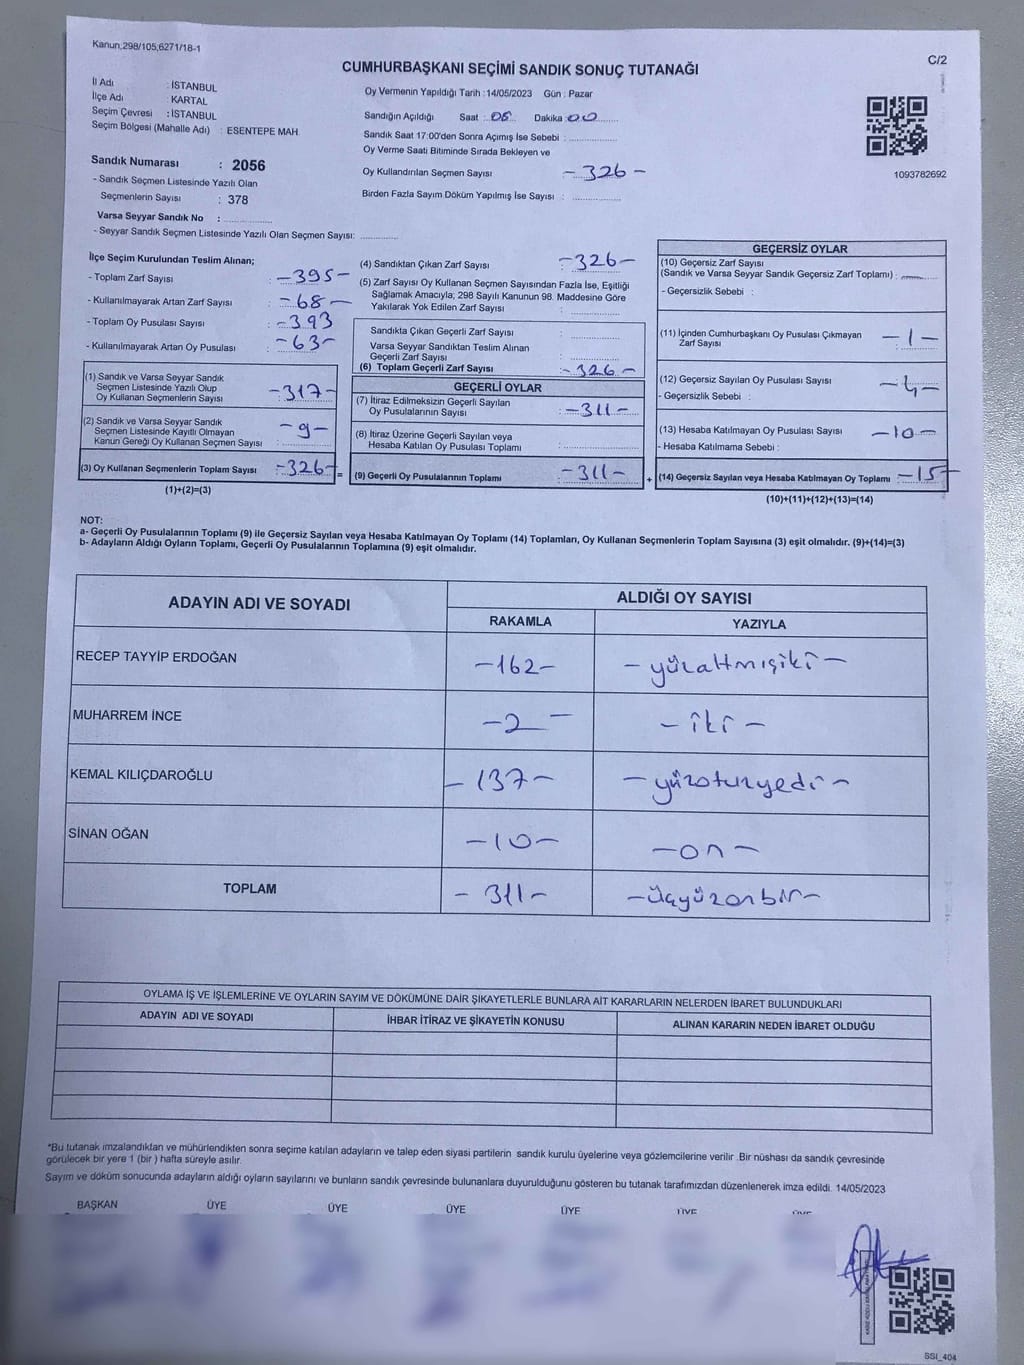 Kanun;298/105,6271/18-1
C/2
CUMHURBAŞKANI SEÇİMİ SANDIK SONUÇ TUTANAĞI
İl Adı : İSTANBUL
İlçe Adı : KARTAL
Seçim Çevresi : İSTANBUL
Seçim Bölgesi (Mahalle Adı) : ESENTEPE MAH.
Oy Vermenin Yapıldığı Tarih : 14/05/2023 Gün : Pazar
Sandığın Açıldığı Saat : 08 Dakika : 00
Sandık Saat 17:00'den Sonra Açımış İse Sebebi :
Oy Verme Saati Bitiminde Sırada Bekleyen ve
Oy Kullandırılan Seçmen Sayısı : -326-
Birden Fazla Sayım Döküm Yapılmış İse Sayısı :
1093782692
Sandık Numarası : 2056
- Sandık Seçmen Listesinde Yazılı Olan
Seçmenlerin Sayısı : 378
Varsa Seyyar Sandık No :
- Seyyar Sandık Seçmen Listesinde Yazılı Olan Seçmen Sayısı:
İlçe Seçim Kurulundan Teslim Alınan;
- Toplam Zarf Sayısı : -395-
- Kullanılmayarak Artan Zarf Sayısı : -68-
- Toplam Oy Pusulası Sayısı : -393
- Kullanılmayarak Artan Oy Pusulası : -63-
(1) Sandık ve Varsa Seyyar Sandık
Seçmen Listesinde Yazılı Olup
Oy Kullanan Seçmenlerin Sayısı : -317-
(2) Sandık ve Varsa Seyyar Sandık
Seçmen Listesinde Kayıtlı Olmayan
Kanun Gereği Oy Kullanan Seçmen Sayısı : -9-
(3) Oy Kullanan Seçmenlerin Toplam Sayısı : -326-
(1)+(2)=(3)
(4) Sandıktan Çıkan Zarf Sayısı : -326-
(5) Zarf Sayısı Oy Kullanan Seçmen Sayısından Fazla İse, Eşitliği
Sağlamak Amacıyla; 298 Sayılı Kanunun 98. Maddesine Göre
Yakılarak Yok Edilen Zarf Sayısı :
Sandıkta Çıkan Geçerli Zarf Sayısı :
Varsa Seyyar Sandıktan Teslim Alınan
Geçerli Zarf Sayısı :
(6) Toplam Geçerli Zarf Sayısı : -326-
=
GEÇERLİ OYLAR
(7) İtiraz Edilmeksizin Geçerli Sayılan
Oy Pusulalarının Sayısı : -311-
(8) İtiraz Üzerine Geçerli Sayılan veya
Hesaba Katılan Oy Pusulası Toplamı :
(9) Geçerli Oy Pusulalarının Toplamı : -311-
+
GEÇERSİZ OYLAR
(10) Geçersiz Zarf Sayısı
(Sandık ve Varsa Seyyar Sandık Geçersiz Zarf Toplamı) :
- Geçersizlik Sebebi :
(11) İçinden Cumhurbaşkanı Oy Pusulası Çıkmayan
Zarf Sayısı : -1-
(12) Geçersiz Sayılan Oy Pusulası Sayısı : -4-
- Geçersizlik Sebebi :
(13) Hesaba Katılmayan Oy Pusulası Sayısı : -10-
- Hesaba Katılmama Sebebi :
(14) Geçersiz Sayılan veya Hesaba Katılmayan Oy Toplamı : -15-
(10)+(11)+(12)+(13)=(14)
NOT:
a- Geçerli Oy Pusulalarının Toplamı (9) ile Geçersiz Sayılan veya Hesaba Katılmayan Oy Toplamı (14) Toplamları, Oy Kullanan Seçmenlerin Toplam Sayısına (3) eşit olmalıdır. (9)+(14)=(3)
b- Adayların Aldığı Oyların Toplamı, Geçerli Oy Pusulalarının Toplamına (9) eşit olmalıdır.
ADAYIN ADI VE SOYADI
ALDIĞI OY SAYISI
RAKAMLA YAZIYLA
RECEP TAYYİP ERDOĞAN -162- -yüzaltmışiki-
MUHARREM İNCE -2- -iki-
KEMAL KILIÇDAROĞLU -137- -yüzotuzyedi-
SİNAN OĞAN -10- -on-
TOPLAM -311- -üçyüzonbir-
OYLAMA İŞ VE İŞLEMLERİNE VE OYLARIN SAYIM VE DÖKÜMÜNE DAİR ŞİKAYETLERLE BUNLARA AİT KARARLARIN NELERDEN İBARET BULUNDUKLARI
ADAYIN ADI VE SOYADI İHBAR İTİRAZ VE ŞİKAYETİN KONUSU ALINAN KARARIN NEDEN İBARET OLDUĞU
*Bu tutanak imzalandıktan ve mühürlendikten sonra seçime katılan adayların ve talep eden siyasi partilerin sandık kurulu üyelerine veya gözlemcilerine verilir .Bir nüshası da sandık çevresinde
görülecek bir yere 1 (bir ) hafta süreyle asılır.
Sayım ve döküm sonucunda adayların aldığı oyların sayılarını ve bunların sandık çevresinde bulunanlara duyurulduğunu gösteren bu tutanak tarafımızdan düzenlenerek imza edildi. 14/05/2023
BAŞKAN ÜYE ÜYE ÜYE ÜYE ÜYE ÜYE
SSI_404